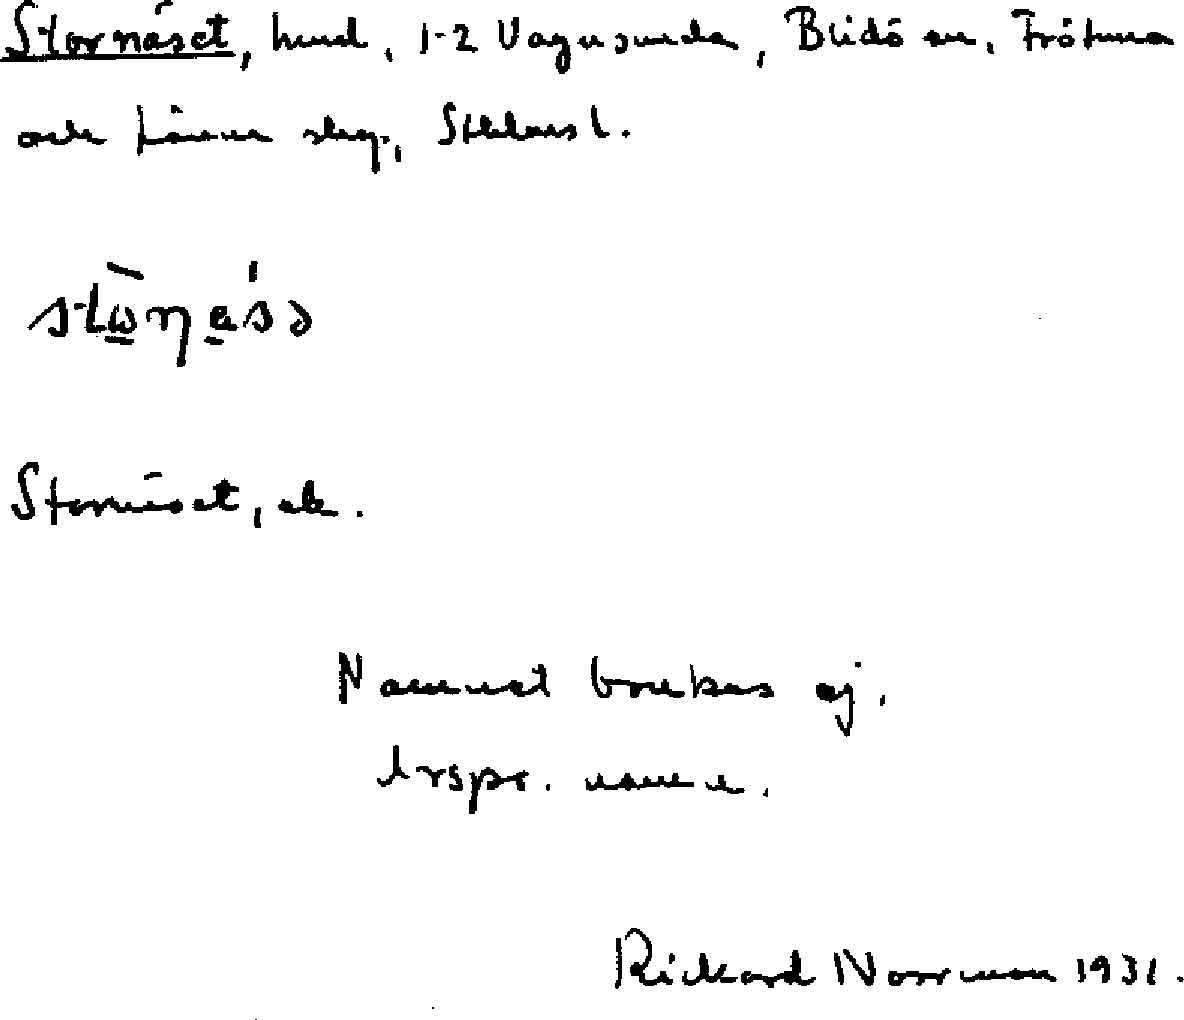 Stornäset, hmd, 1-2 Vagnsunda, Blidö sn, Frötuna
och Länna skg, Sthlms l.
stὼ̠ŋa̠´sə
Stornäset, ek.
Namnet brukas ej.
Urspr. namn.
Rickard Norrman 1931.